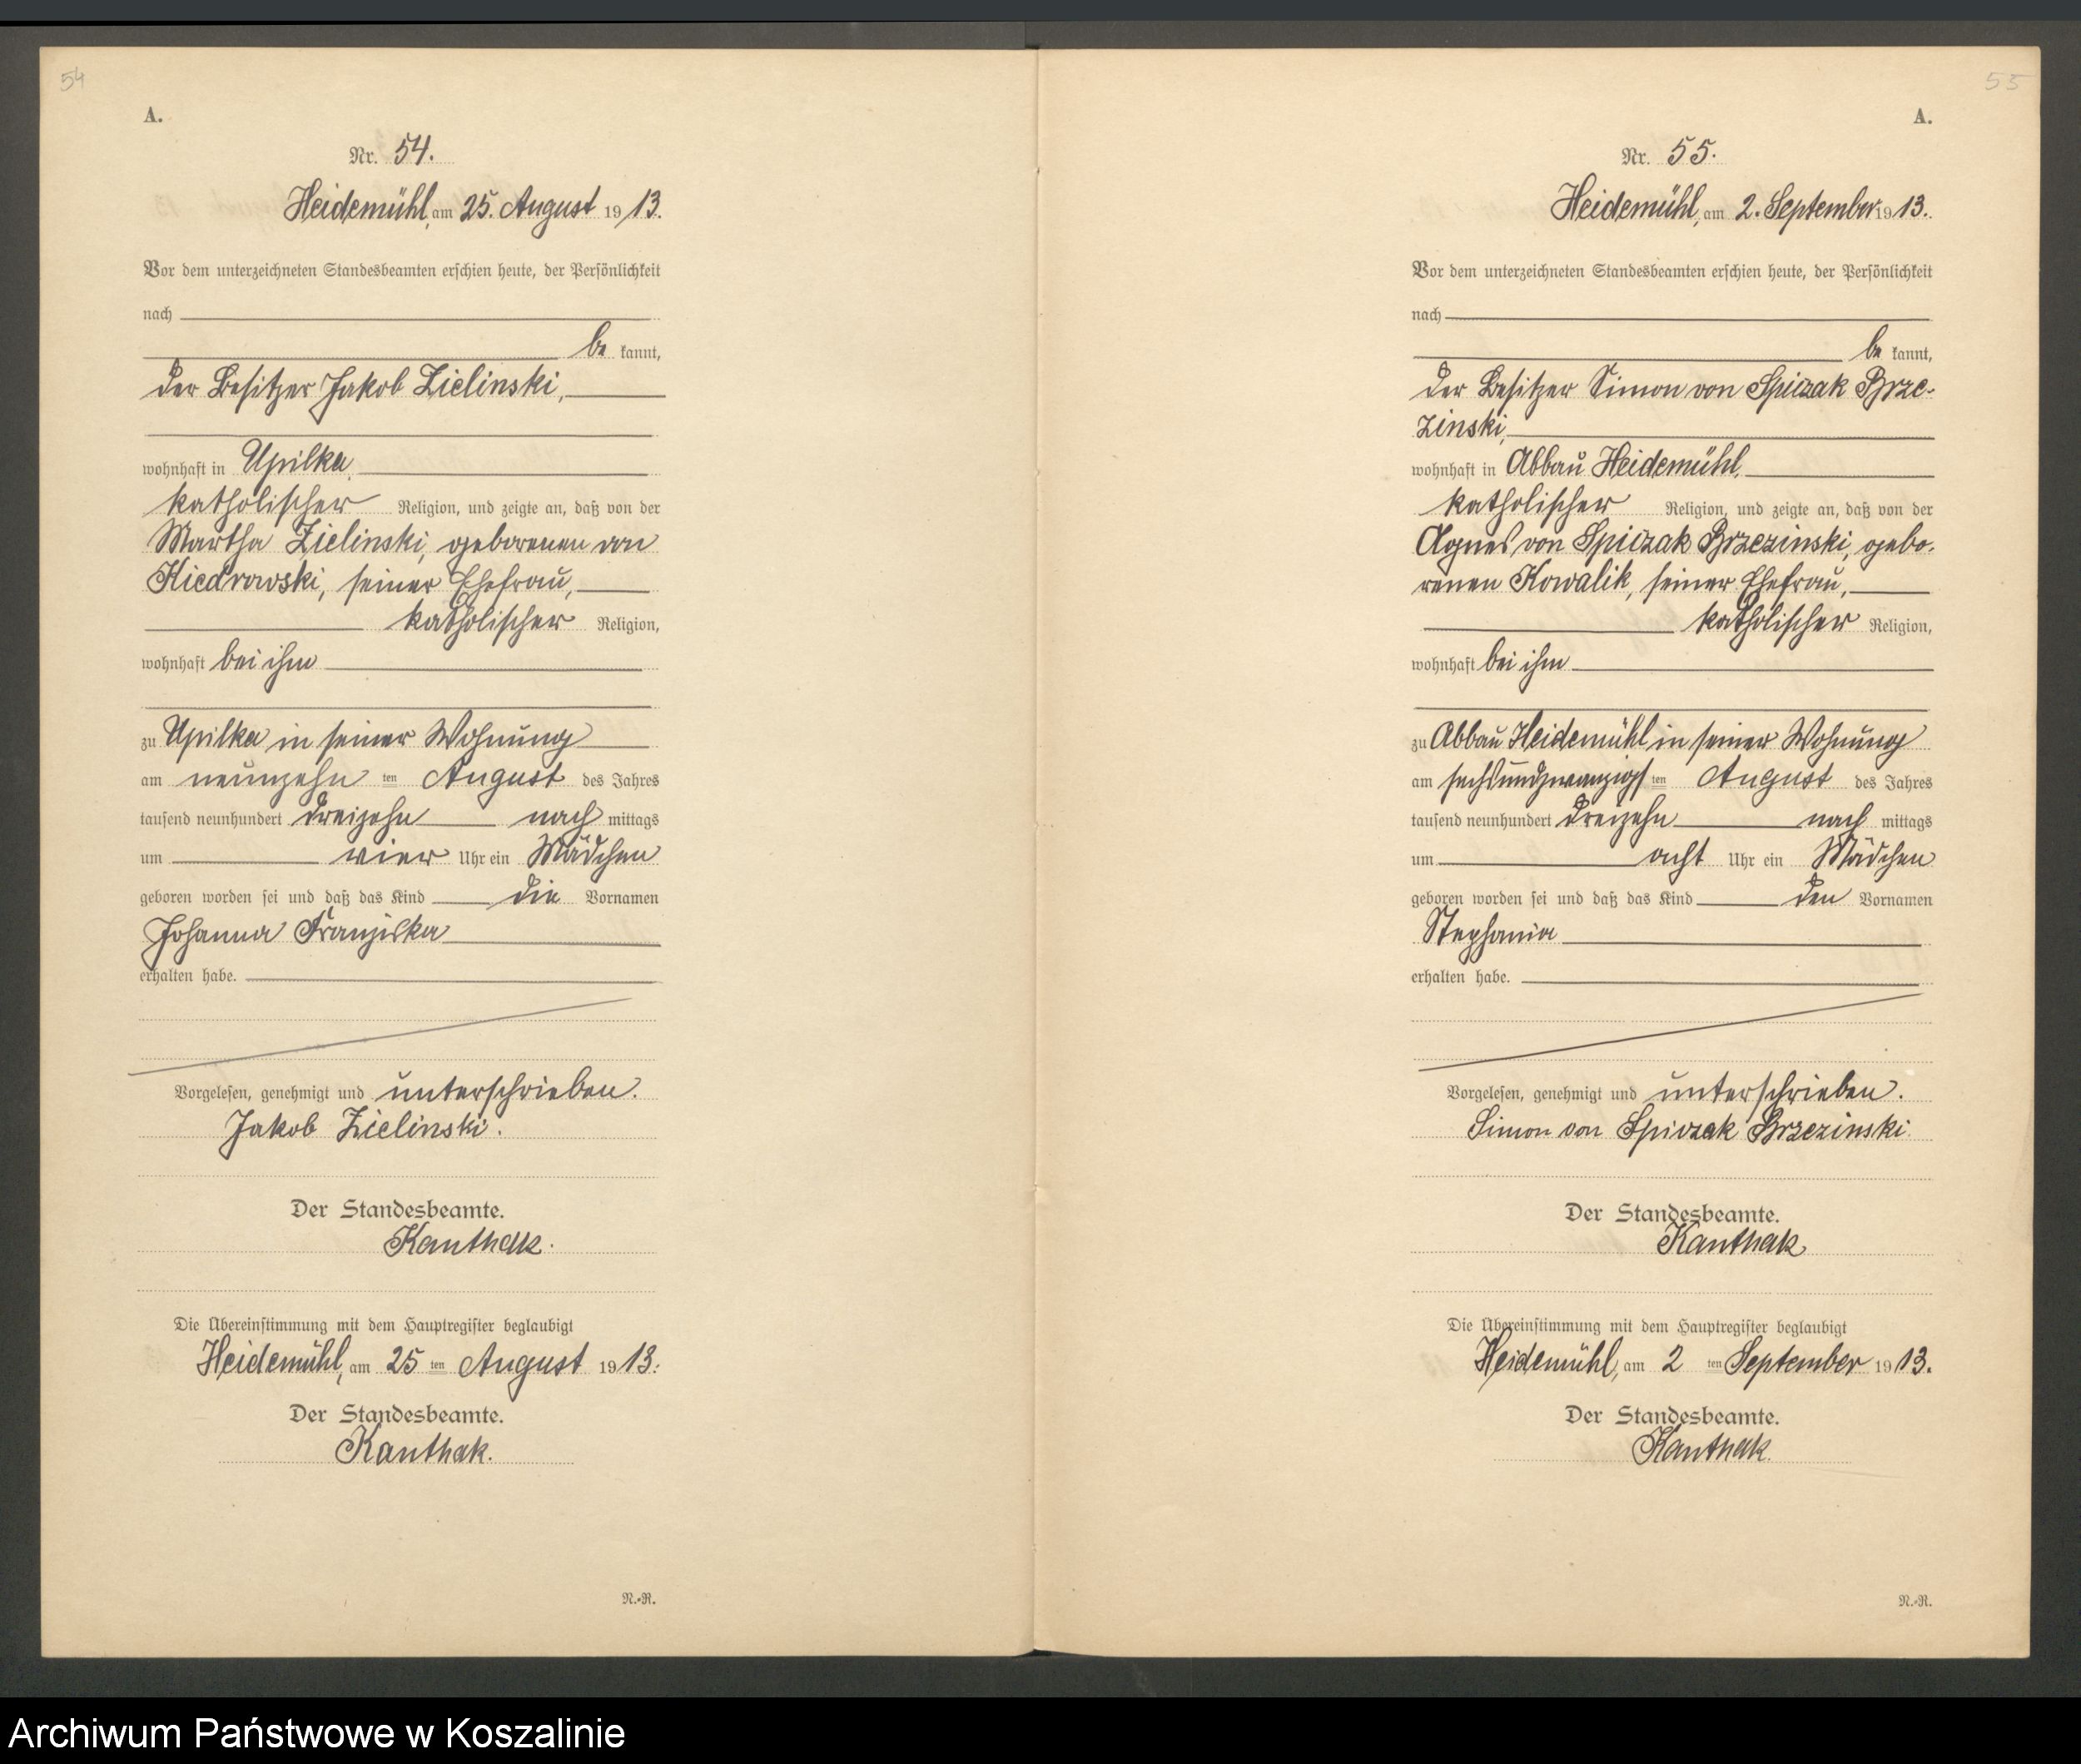 54
A.
Nr. 54.
Heidemühl, am 25. August 1913.
Vor dem unterzeichneten Standesbeamten erschien heute, der Persönlichkeit
nach
be kannt,
der Besitzer Jakob Zielinski,
wohnhaft in Upilka
katholischer Religion, und zeigte an, daß von der
Martha Zielinski, geborenen von
Kiedrowski, seiner Ehefrau,
katholischer Religion,
wohnhaft bei ihm
zu Upilka in seiner Wohnung
am neunzehn ten August des Jahres
tausend neunhundert dreizehn nach mittags
um vier Uhr ein Mädchen
geboren worden sei und daß das Kind die Vornamen
Johanna Franziska
erhalten habe.
Vorgelesen, genehmigt und unterschrieben.
Jakob Zielinski.
Der Standesbeamte.
Kanthak.
Die Übereinstimmung mit dem Hauptregister beglaubigt
Heidemühl, am 25 ten August 1913.
Der Standesbeamte.
Kanthak.
N.-R.
55
A.
Nr. 55.
Heidemühl, am 2. September 1913.
Vor dem unterzeichneten Standesbeamten erschien heute, der Persönlichkeit
nach
be kannt,
der Besitzer Simon von Spiczak Brze-
zinski,
wohnhaft in Abbau Heidemühl,
katholischer Religion, und zeigte an, daß von der
Agnes von Spiczak Brzezinski, gebo-
renen Kowalik, seiner Ehefrau,
katholischer Religion,
wohnhaft bei ihm
zu Abbau Heidemühl in seiner Wohnung
am sechsundzwanzigs ten August des Jahres
tausend neunhundert dreizehn nach mittags
um acht Uhr ein Mädchen
geboren worden sei und daß das Kind den Vornamen
Stephania
erhalten habe.
Vorgelesen, genehmigt und unterschrieben.
Simon von Spiczak Brzezinski.
Der Standesbeamte.
Kanthak
Die Übereinstimmung mit dem Hauptregister beglaubigt
Heidemühl, am 2 ten September 1913.
Der Standesbeamte.
Kanthak.
N.-R.
Archiwum Państwowe w Koszalinie